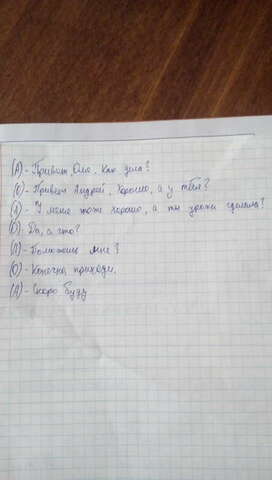 (А) - Привет, Оля. Как дела?
(О) - Привет Андрей, Хорошо, а у тебя?
(А) - У меня тоже хорошо, а ты уроки сделала?
(О) - Да, а что?
(А) - Поможешь мне?
(О) - Конечно, приходи.
(А) - Скоро буду